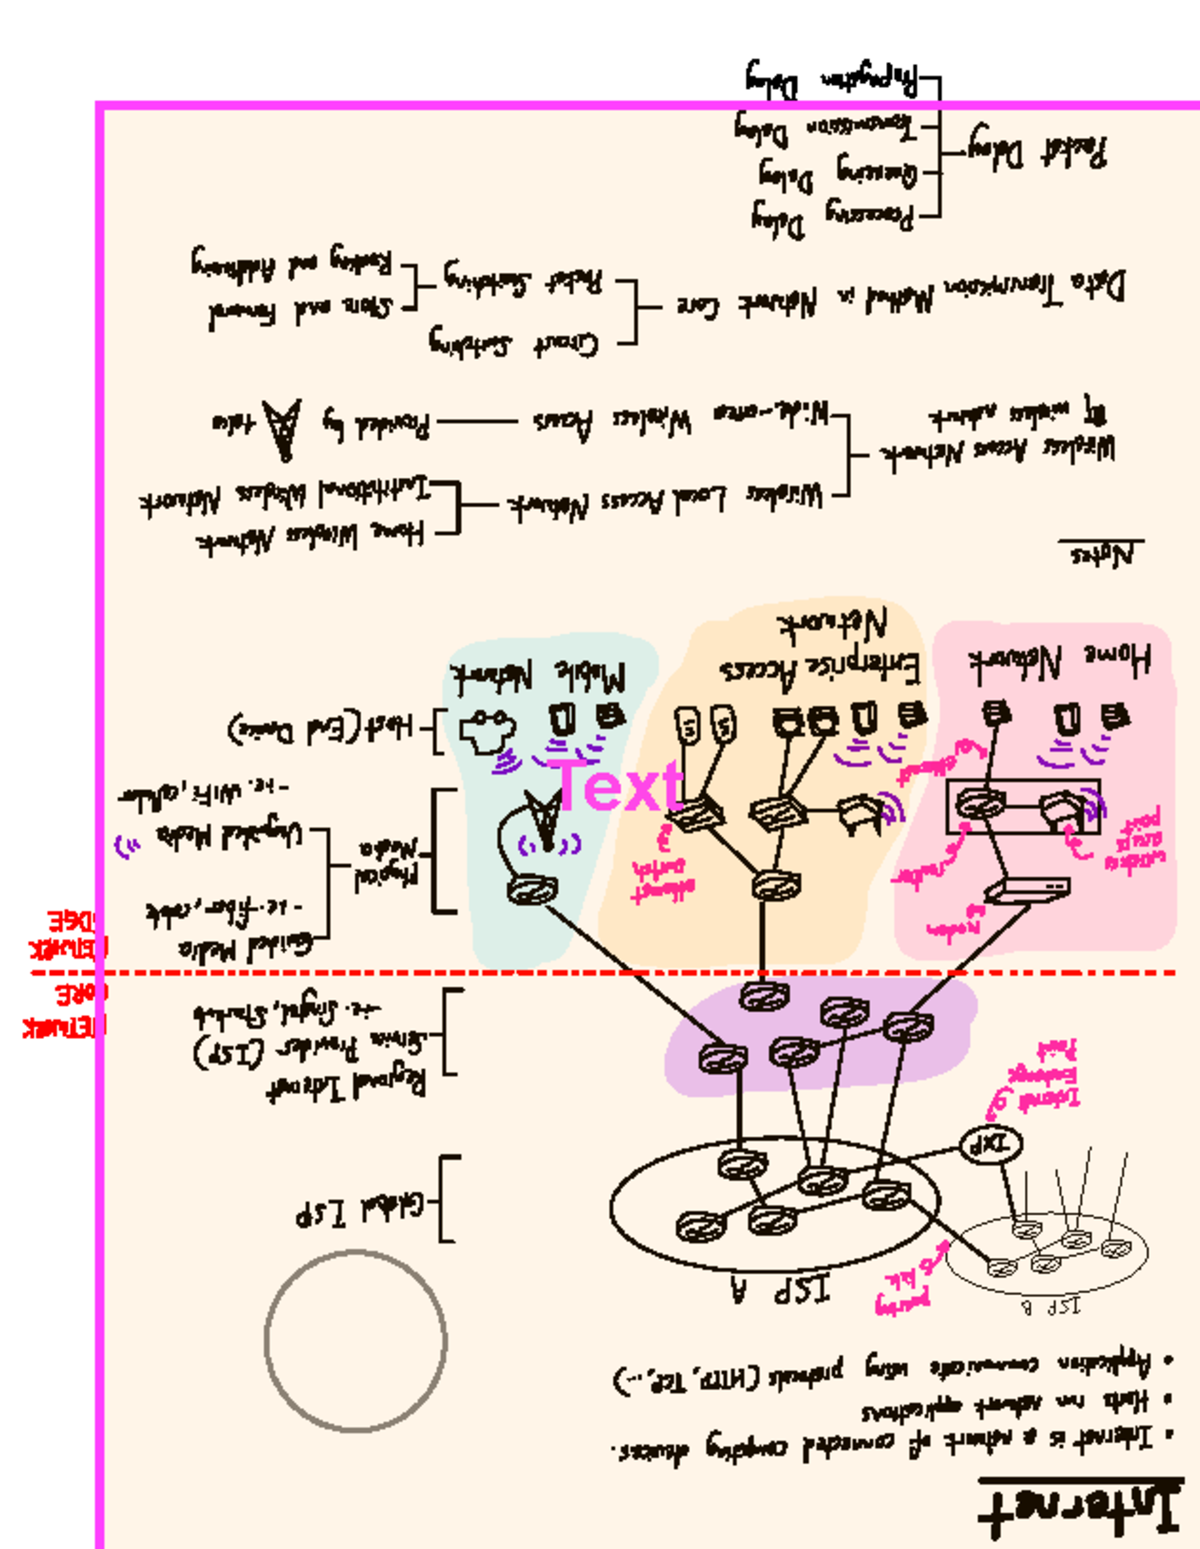 Internet
• Internet is a network of connected computing devices.
• Hosts run network applications
• Application communicate using protocols (HTTP, TCP, ...)
ISP A
ISP B
peering
link
IXP
Internet
Exchange
Point
Global ISP
Regional Internet
Service Provider (ISP)
-ie. Singtel, Starhub
NETWORK
CORE
NETWORK
EDGE
Guided Media
-ie. fiber, cable
Unguided Media
-ie. WiFi, cellular
Physical
Media
Host (End Device)
modem
router
wireless
access
point
ethernet
ethernet
switch
Text
S
S
Home Network
Enterprise Access
Network
Mobile Network
Notes
Wireless Access Network
wireless network
Wireless Local Access Network
Home Wireless Network
Institutional Wireless Network
Wide-area Wireless Access
Provided by
telco
Data Transmission Method in Network Core
Circuit Switching
Packet Switching
Store and Forward
Routing and Addressing
Packet Delay
Processing Delay
Queueing Delay
Transmission Delay
Propagation Delay